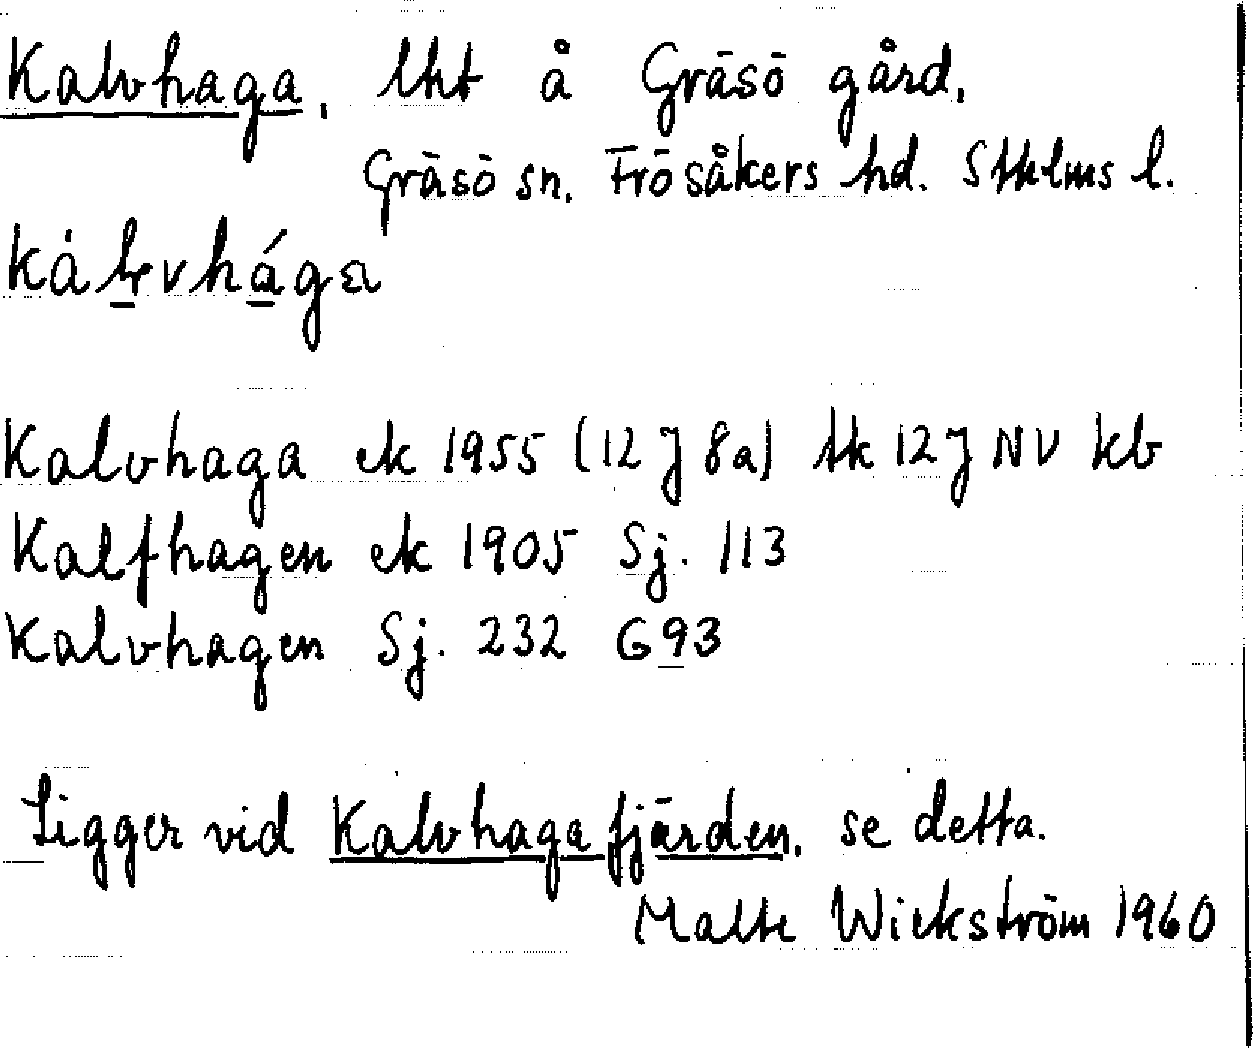 Kalvhaga, lht å Gräsö gård,
Gräsö sn. Frösåkers hd. Sthlms l.
Kalvhaga ek 1955 (12 J 8a) tk 12 J NV kb
Kalfhagen ek 1905 Sj. 113
Kalvhagen Sj. 232 G93
Ligger vid Kalvhagafjärden, se detta.
Malte Wickström 1960